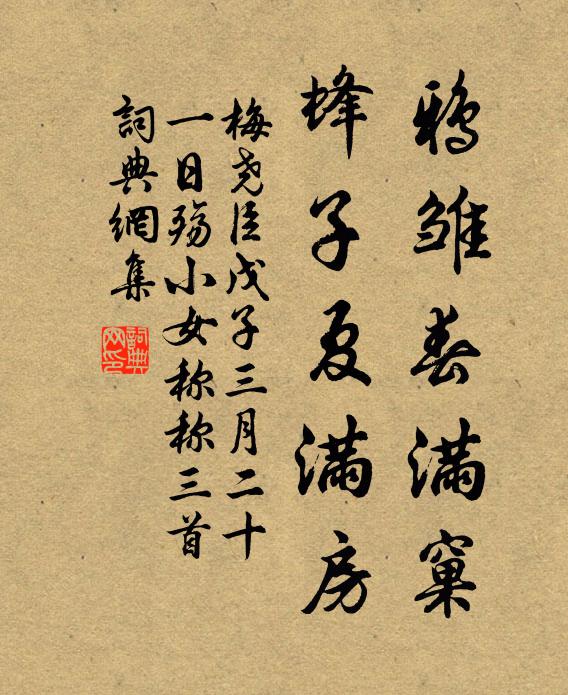 鸦雏春满窠
蜂子夏满房
梅尧臣戊子三月二十
一日殇小女称称三首
詞典網集
詞典网印